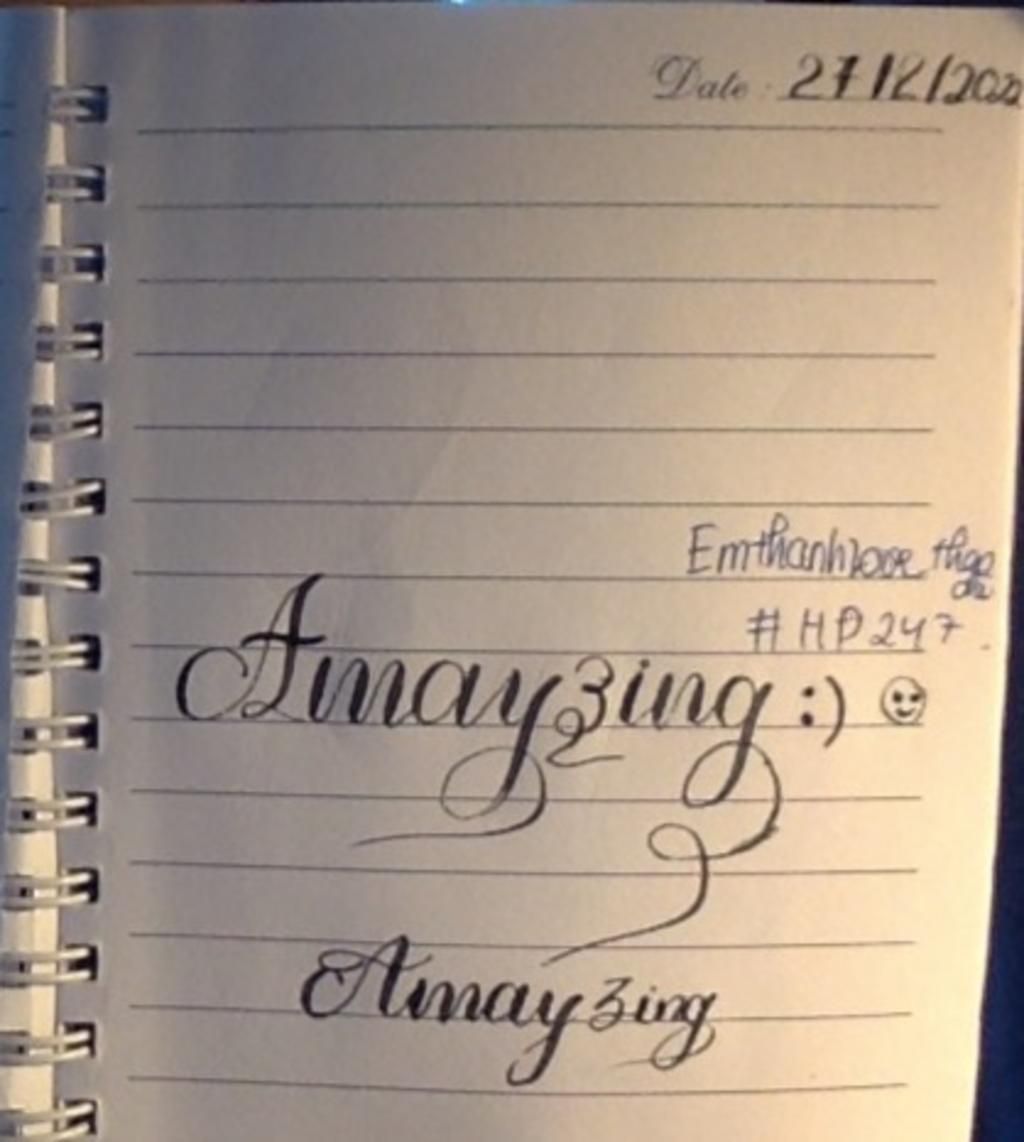 Date : 27/12/2022
Emthanhlove thga
#HP247.
Amayzing :)
Amayzing